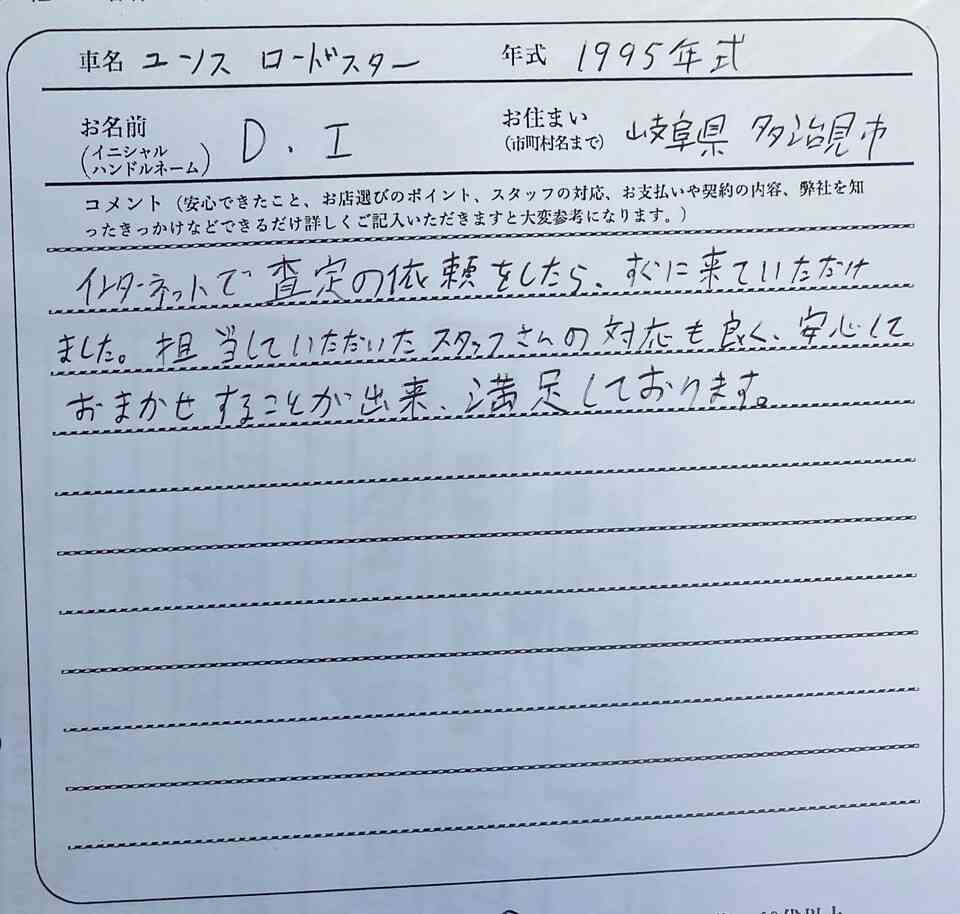 車名 ユーノス ロードスター 年式 1995年式
お名前 (イニシャル ハンドルネーム) D.I お住まい (市町村名まで) 岐阜県 多治見市
コメント（安心できたこと、お店選びのポイント、スタッフの対応、お支払いや契約の内容、弊社を知
ったきっかけなどできるだけ詳しくご記入いただきますと大変参考になります。）
インターネットで査定の依頼をしたら、すぐに来ていただけ
ました。担当していただいたスタッフさんの対応も良く、安心して
おまかせすることが出来、満足しております。